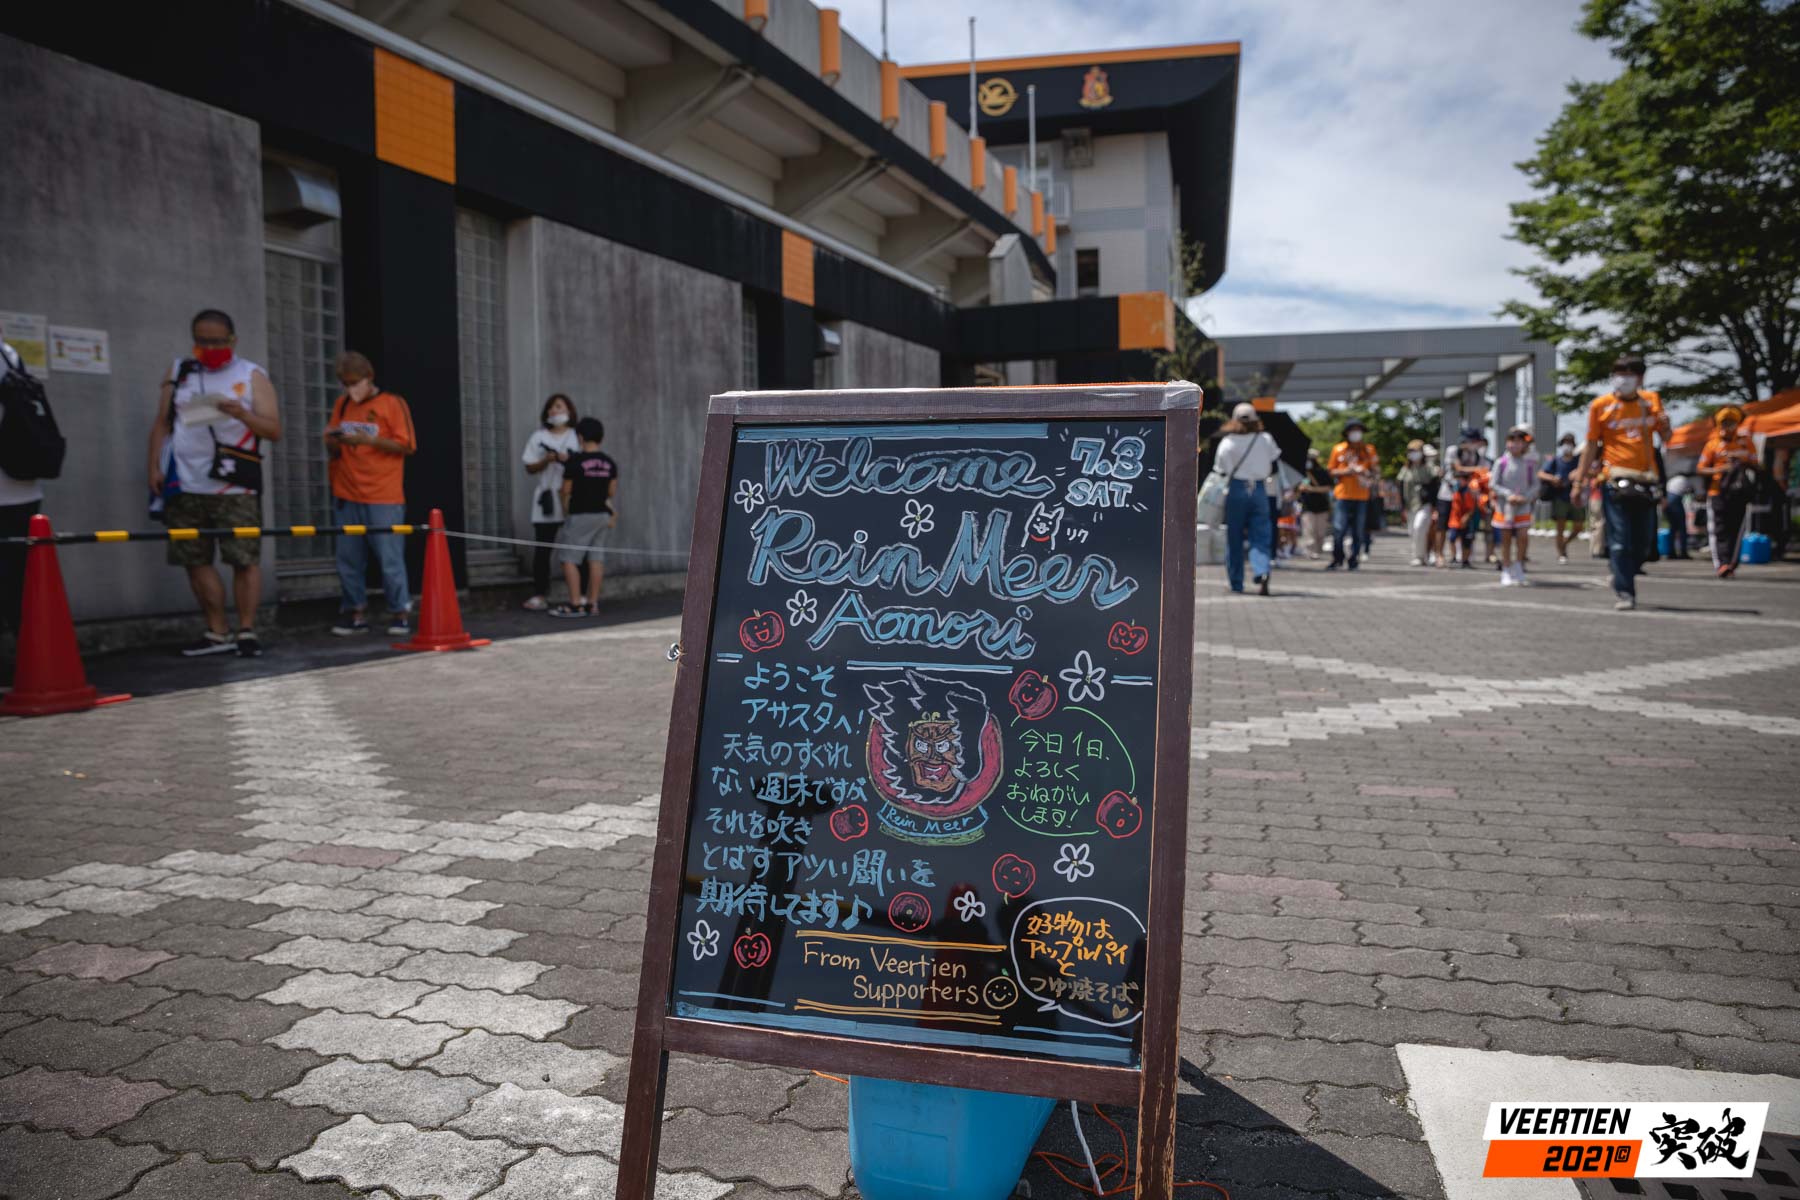 Welcome
7.3
SAT.
Rein Meer
リク
Aomori
ようこそ
アサスタへ!
天気のすぐれ
ない週末ですが
それを吹き
とばすアツい闘いを
期待してます♪
Rein Meer
今日1日、
よろしく
おねがい
します!
From Veertien
Supporters
好物は
アップルパイ
と
つゆ焼そば
VEERTIEN
2021©
突破